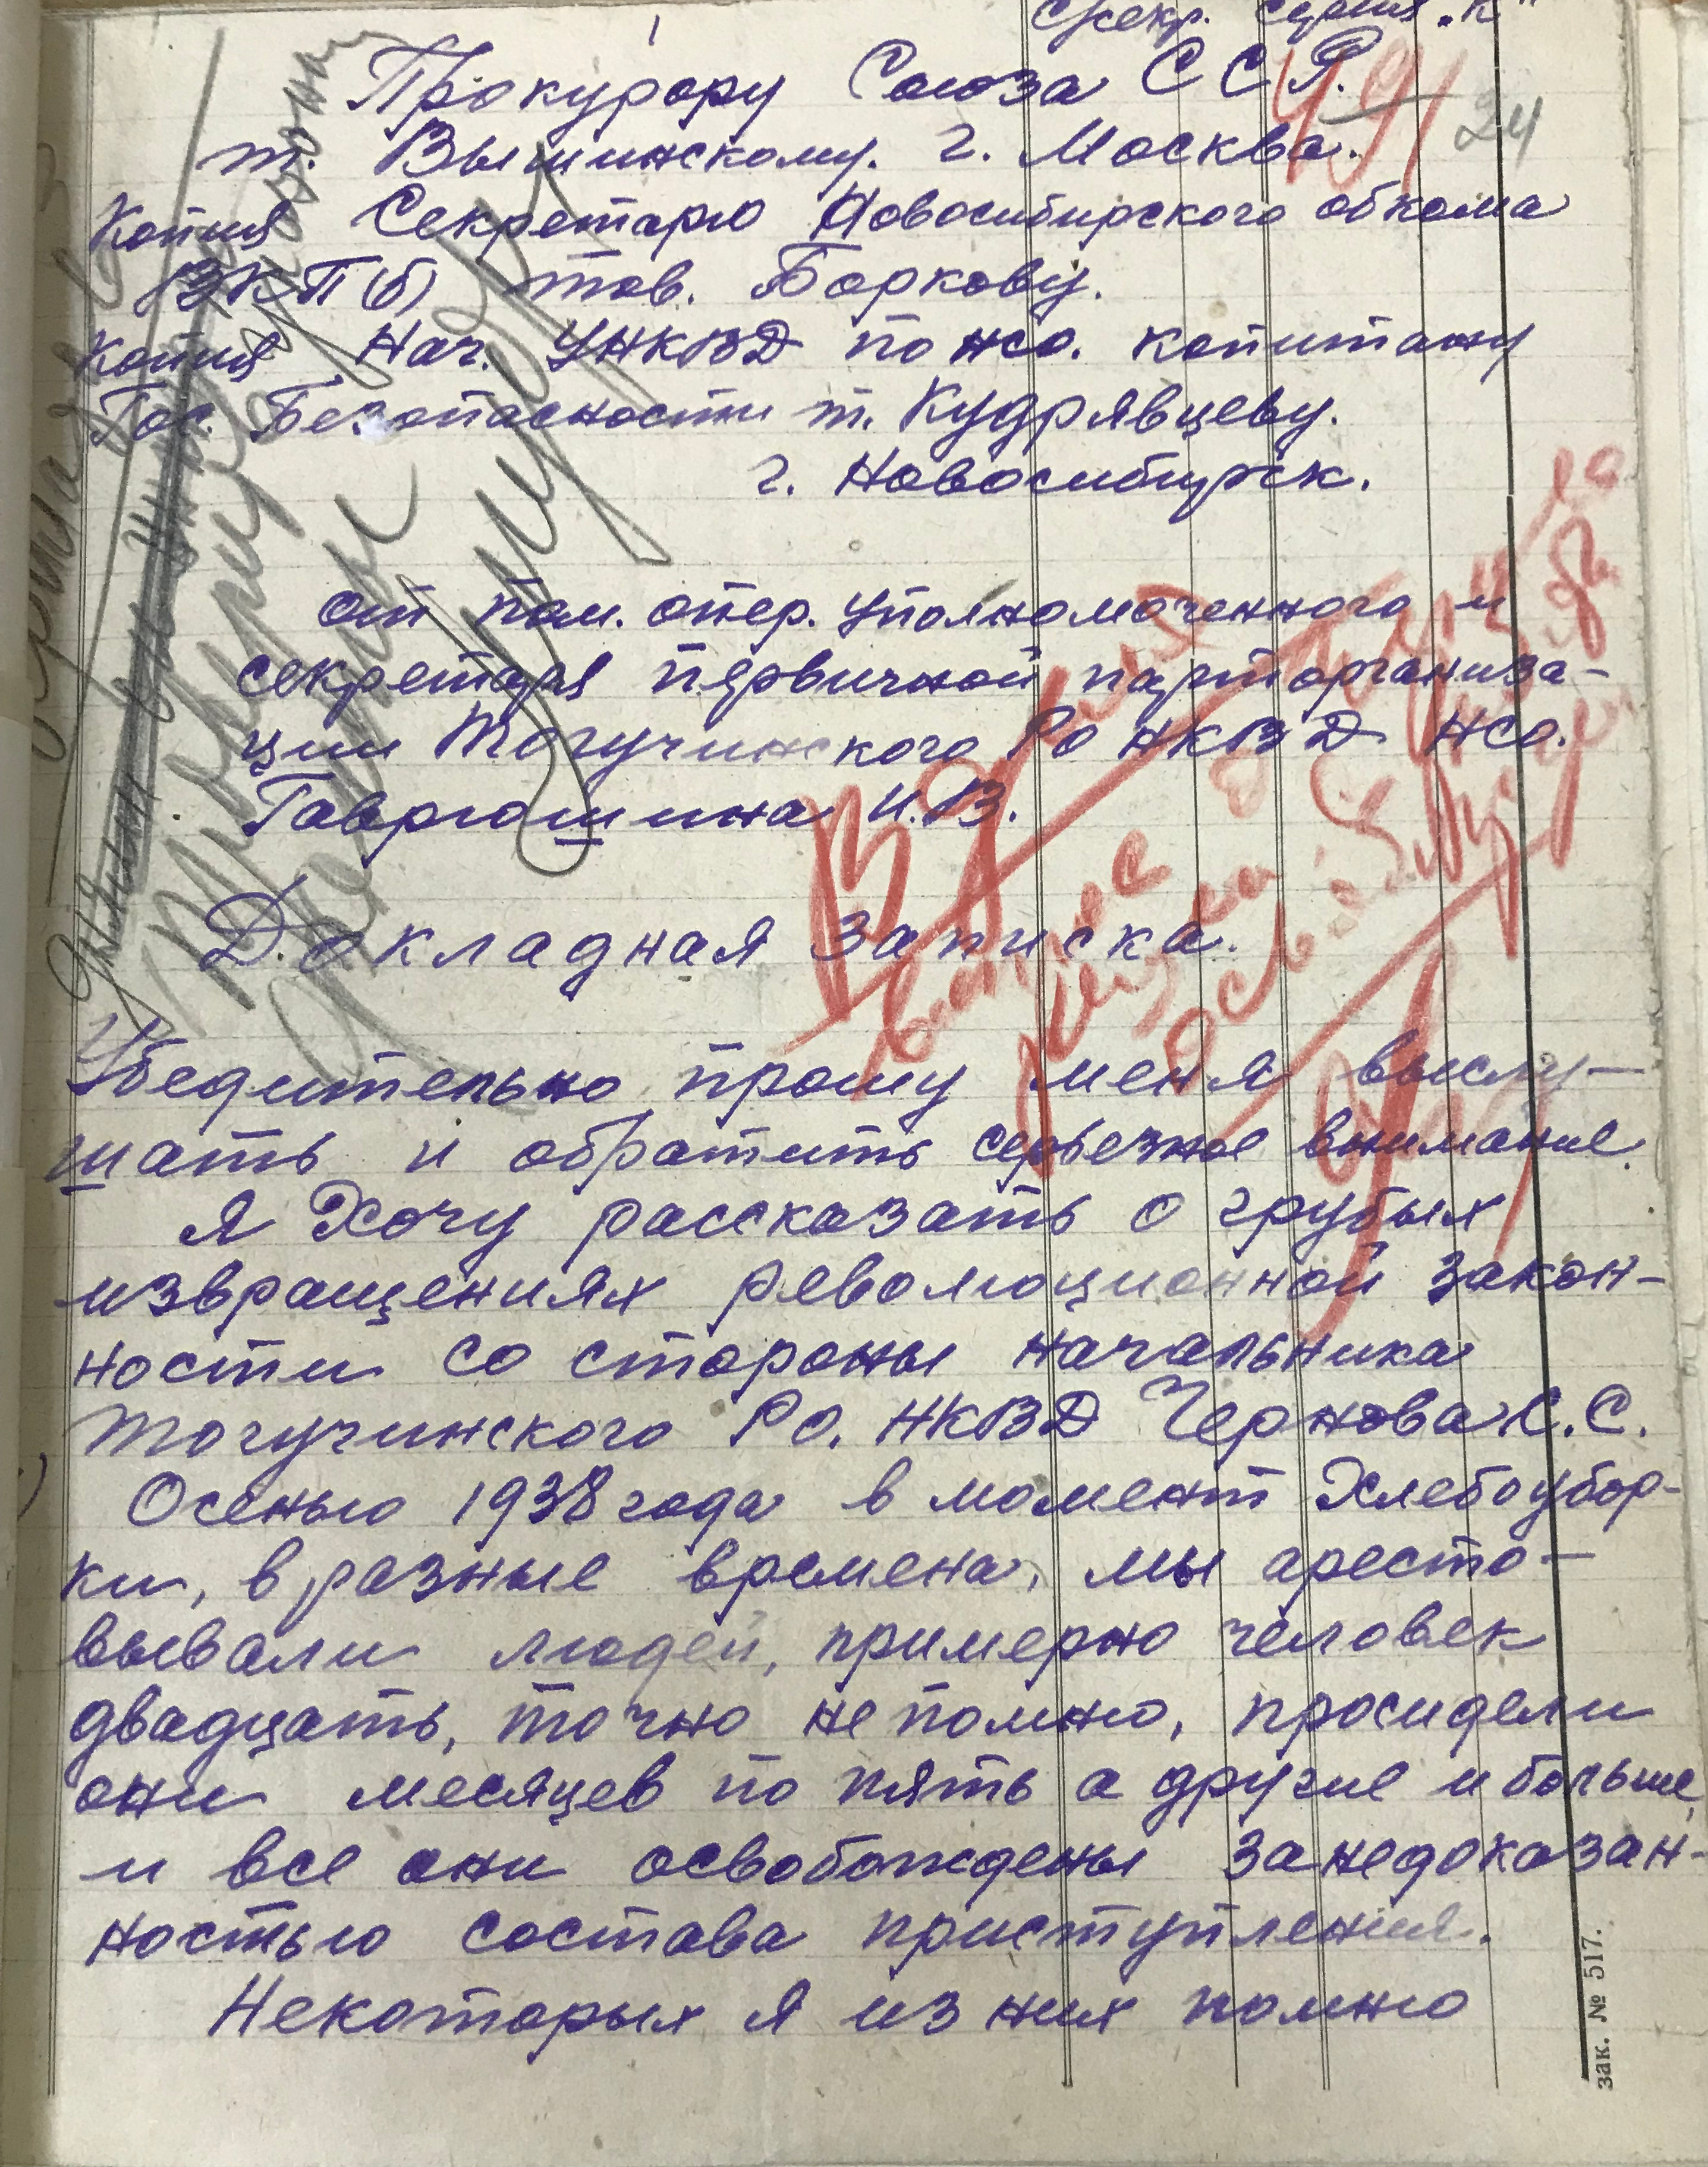 секр. серия „К"
24
Прокурору Союза ССР.
т. Вышинскому. г. Москва.
Копия Секретарю Новосибирского обкома
ВКП(б) тов. Боркову.
Копия Нач. УНКВД по нсо. капитану
Гос. Безопасности т. Кудрявцеву.
г. Новосибирск.
от пом. опер. уполномоченного и
секретаря первичной парторганиза-
ции Тогучинского Ро НКВД НСО.
Гаврюшина И.В.
Докладная записка.
Убедительно прошу меня выслу-
шать и обратить серьезное внимание.
Я Хочу рассказать о грубых
извращениях революционной закон-
ности со стороны начальника
Тогучинского РО. НКВД Чернова С.С.
Осенью 1938 года в момент Хлебоубор-
ки, в разные времена, мы аресто-
вывали людей, примерно человек
двадцать, точно не помню, просидели
они месяцев по пять а другие и больше,
и все они освобождены за недоказан-
ностью состава приступления.
Некоторых я из них помню
зак. № 517.